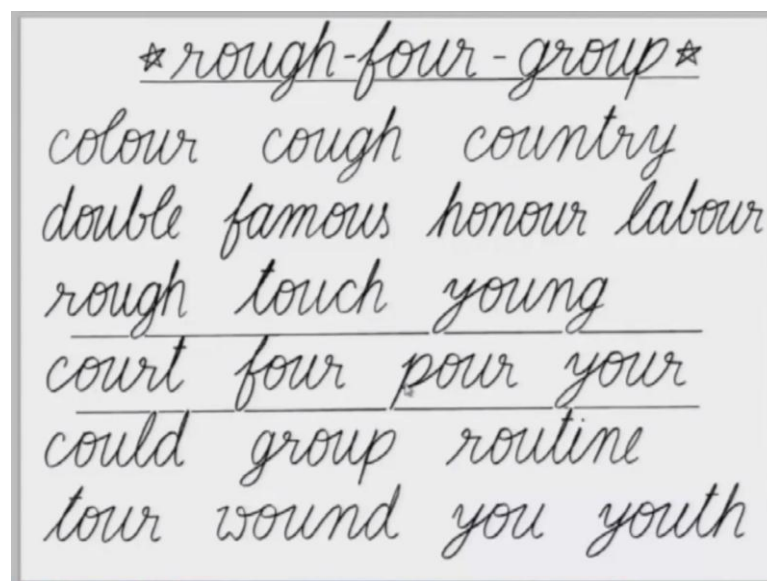 ☆rough-four-group☆
colour cough country
double famous honour labour
rough touch young
court four pour your
could group routine
tour wound you youth